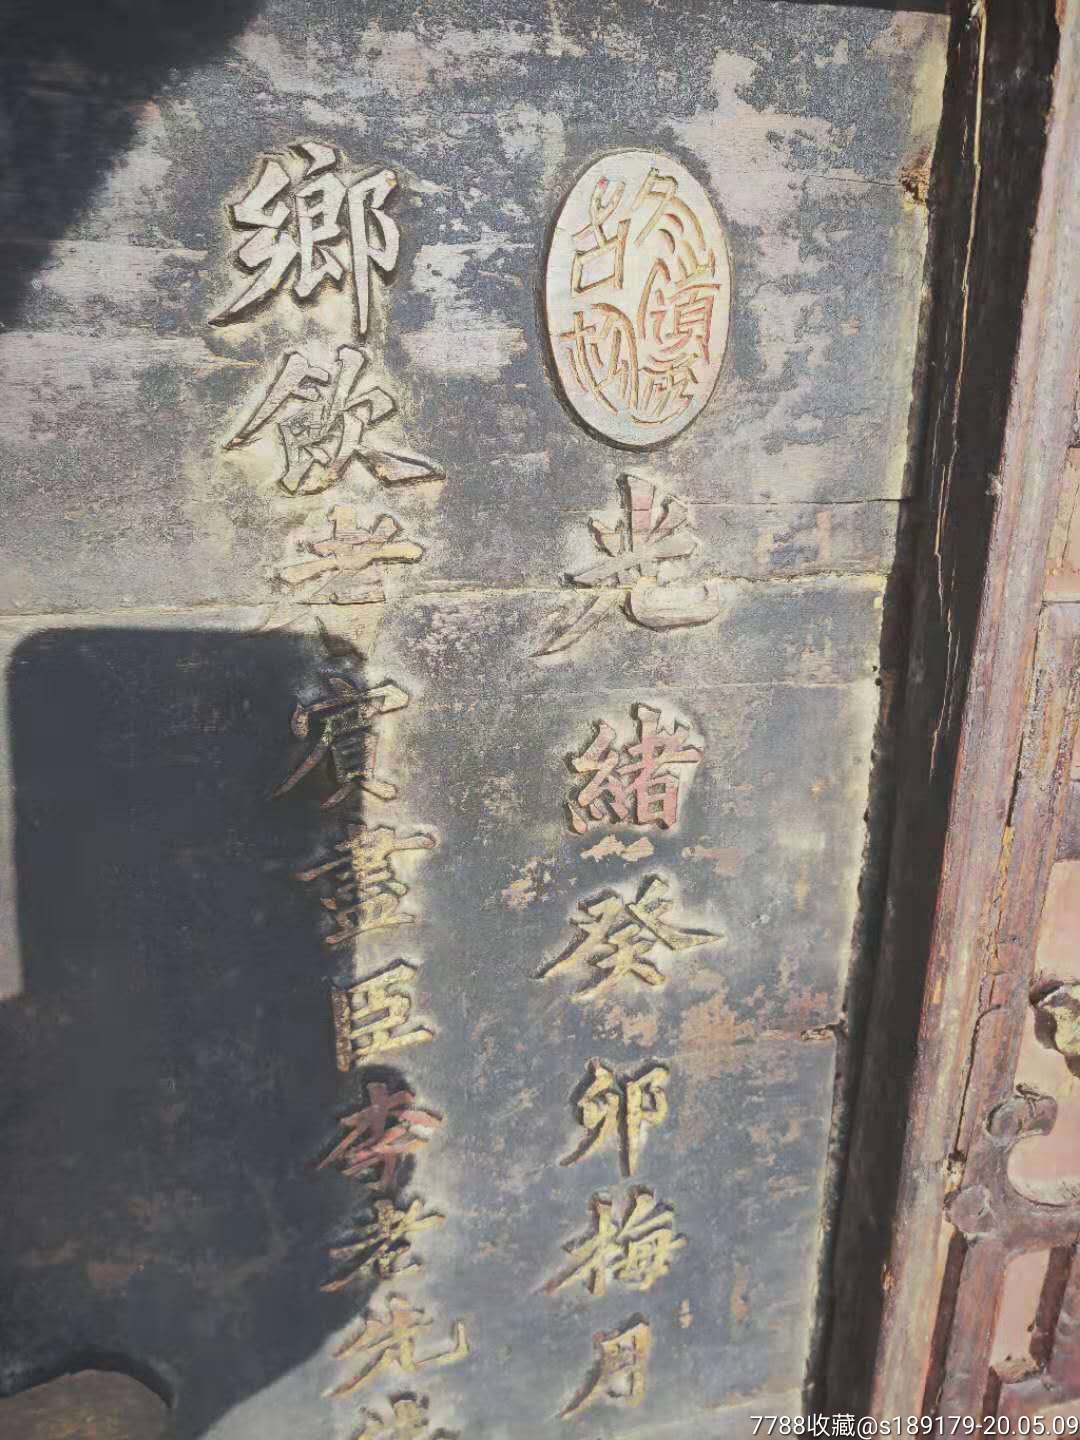 古松
光緒癸卯梅月
鄉飲耆賓盡臣李老先
7788收藏@s189179-20.05.09